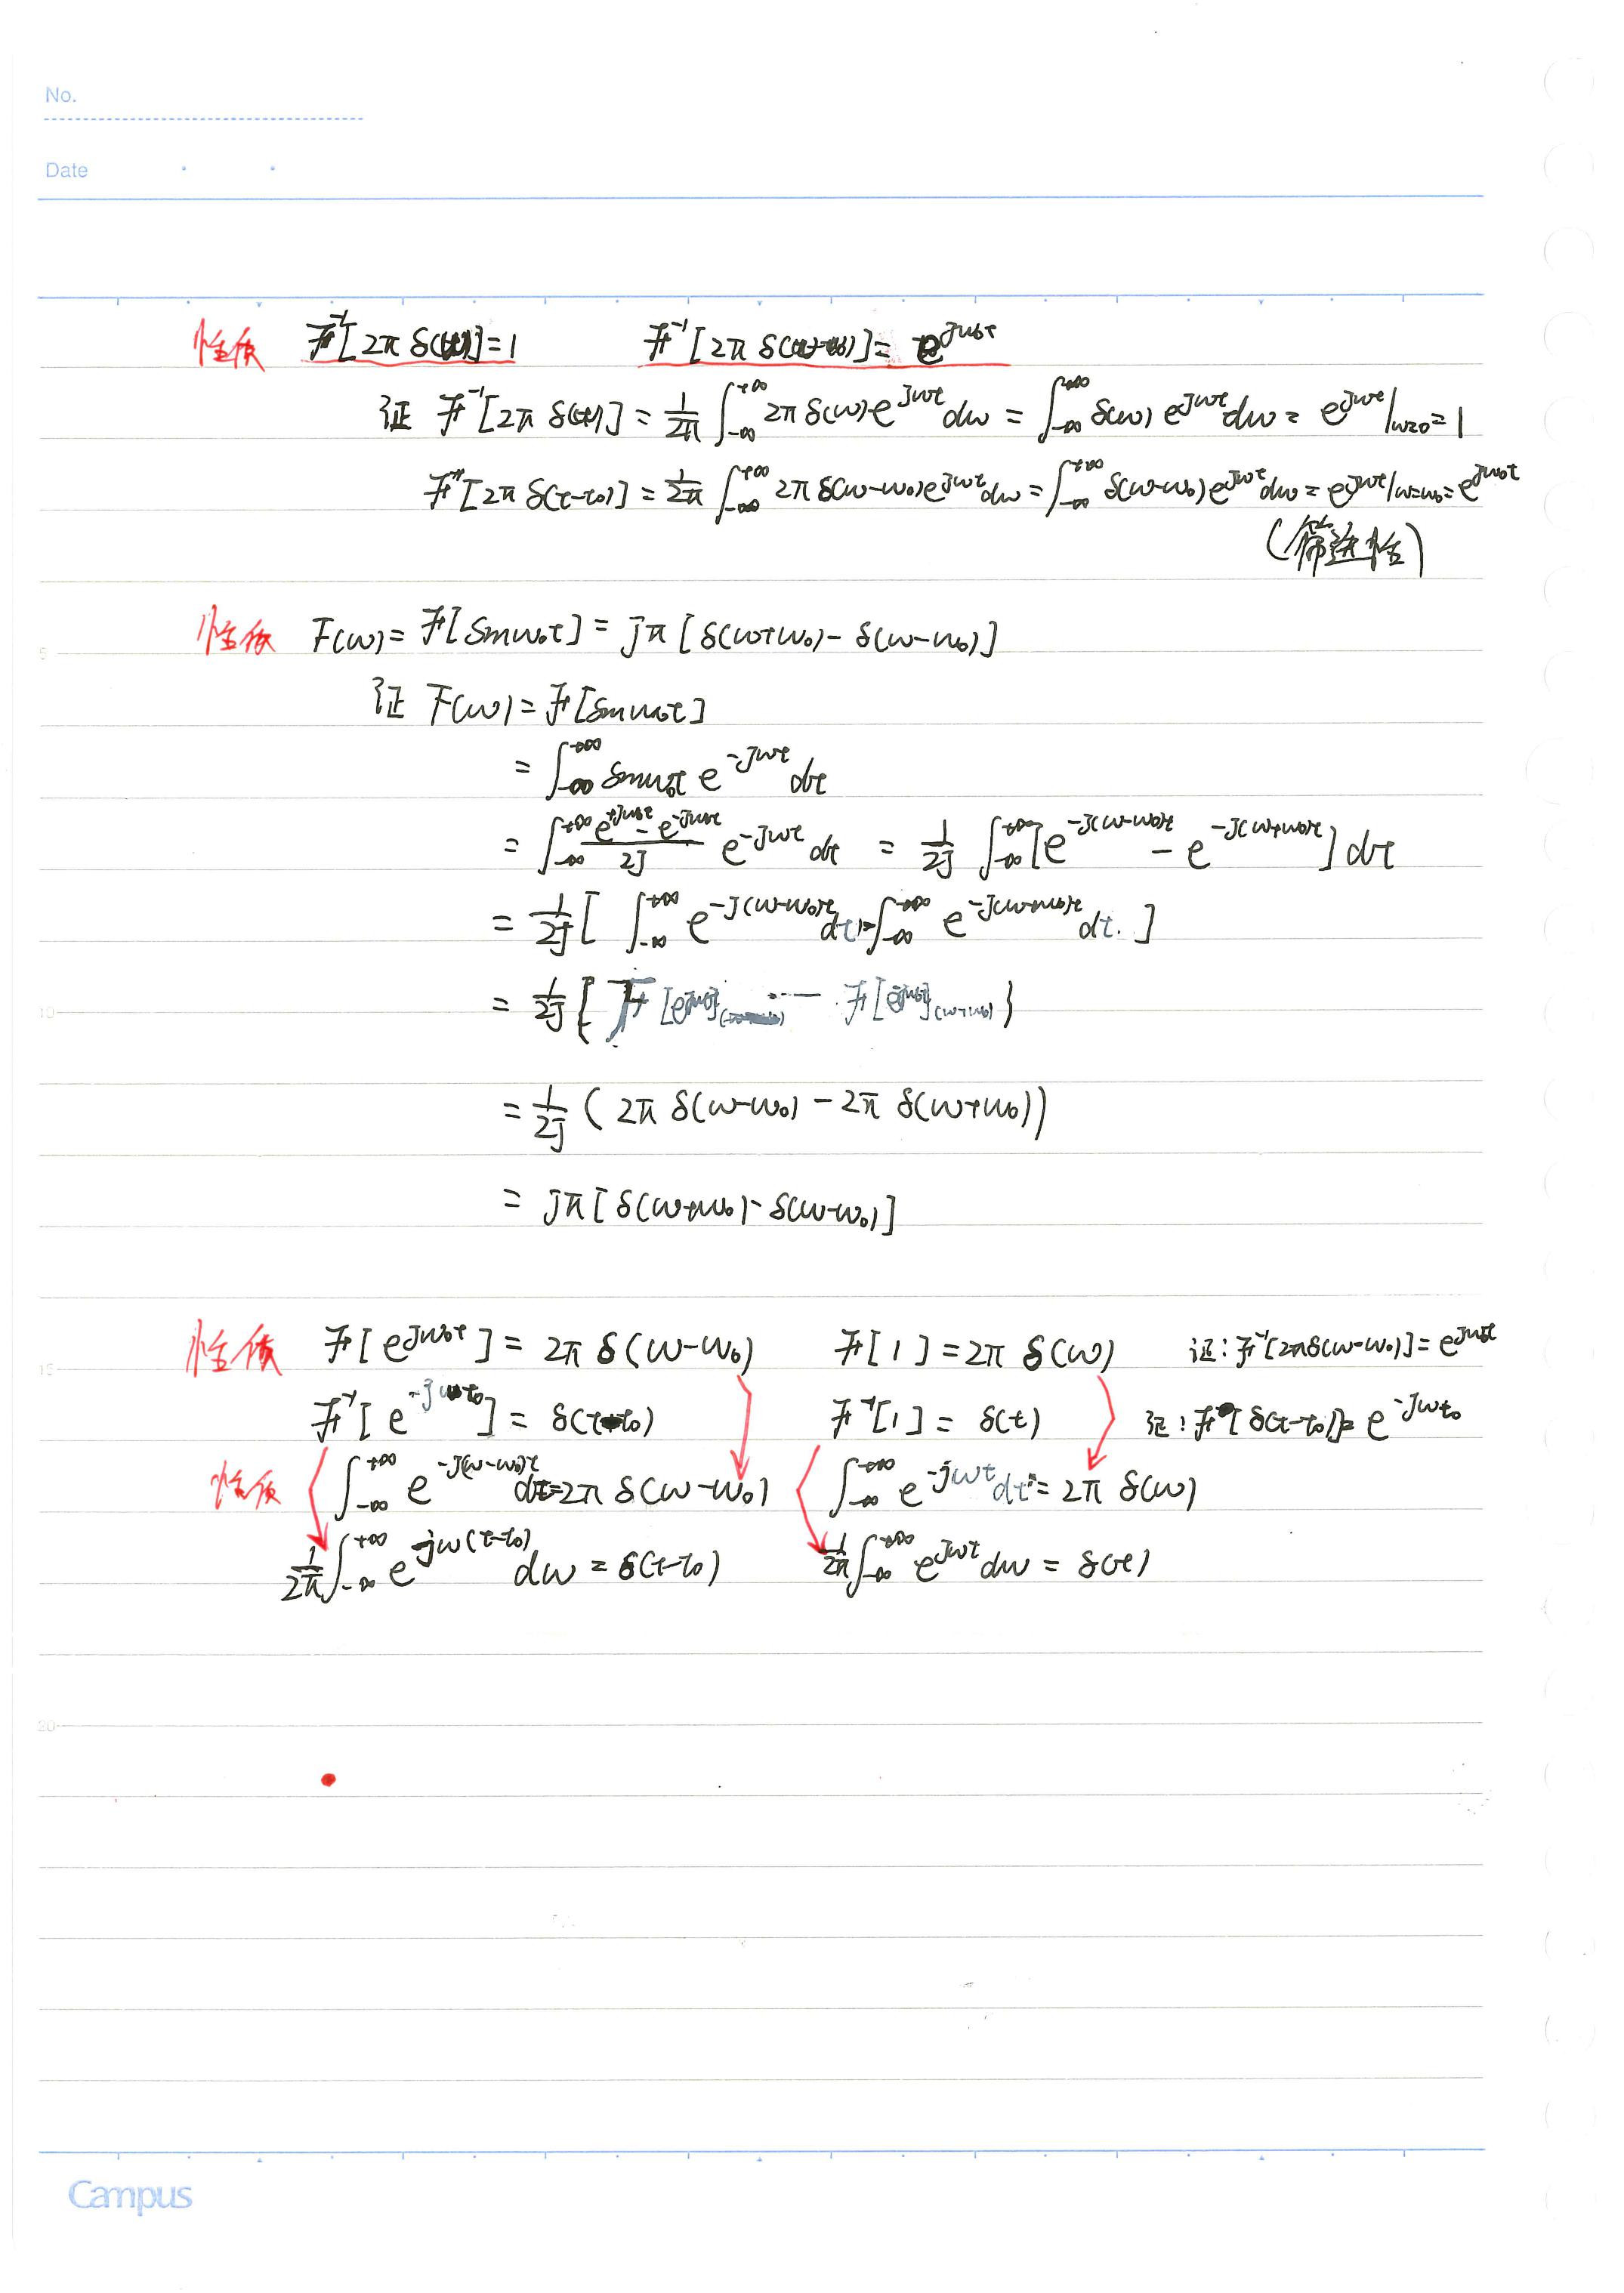 No.
Date
性质 ℱ⁻¹[2πδ(ω)]=1 ℱ⁻¹[2πδ(ω-ω₀)]= e^{jω₀t}
证 ℱ⁻¹[2πδ(t)] = \frac{1}{2π}∫_{-∞}^{+∞} 2πδ(ω)e^{jωt}dω = ∫_{-∞}^{+∞} δ(ω)e^{jωt}dω = e^{jωt}|_{ω=0}=1
ℱ⁻¹[2πδ(t-t₀)] = \frac{1}{2π}∫_{-∞}^{+∞} 2πδ(ω-ω₀)e^{jωt}dω = ∫_{-∞}^{+∞} δ(ω-ω₀)e^{jωt}dω = e^{jωt}|_{ω=ω₀}=e^{jω₀t}
(筛选性)
5
性质 F(ω)=ℱ[sinω₀t]= jπ[δ(ω+ω₀)-δ(ω-ω₀)]
证 F(ω)=ℱ[sinω₀t]
= ∫_{-∞}^{+∞} sinω₀t e^{-jωt}dt
= ∫_{-∞}^{+∞} \frac{e^{+jω₀t}-e^{-jω₀t}}{2j} e^{-jωt}dt = \frac{1}{2j}∫_{-∞}^{+∞}[e^{-j(ω-ω₀)t} - e^{-j(ω+ω₀)t}]dt
= \frac{1}{2j}[∫_{-∞}^{+∞} e^{-j(ω-ω₀)t}dt - ∫_{-∞}^{+∞} e^{-j(ω+ω₀)t}dt.]
10
= \frac{1}{2j}{ℱ[e^{jω₀t}] - ℱ[e^{-jω₀t}]_{(ω+ω₀)}}
= \frac{1}{2j}(2πδ(ω-ω₀)-2πδ(ω+ω₀))
= jπ[δ(ω+ω₀)-δ(ω-ω₀)]
15
性质 ℱ[e^{jω₀t}]=2πδ(ω-ω₀) ℱ[1]=2πδ(ω) 证:ℱ⁻¹[2πδ(ω-ω₀)]=e^{jω₀t}
ℱ⁻¹[e^{-jωt₀}]=δ(t-t₀) ℱ⁻¹[1]=δ(t) 证:ℱ[δ(t-t₀)]=e^{-jωt₀}
性质 ∫_{-∞}^{+∞} e^{-j(ω-ω₀)t}dt=2πδ(ω-ω₀) ∫_{-∞}^{+∞} e^{-jωt}dt=2πδ(ω)
\frac{1}{2π}∫_{-∞}^{+∞} e^{jω(t-t₀)}dω=δ(t-t₀) \frac{1}{2π}∫_{-∞}^{+∞} e^{jωt}dω=δ(t)
20
Campus